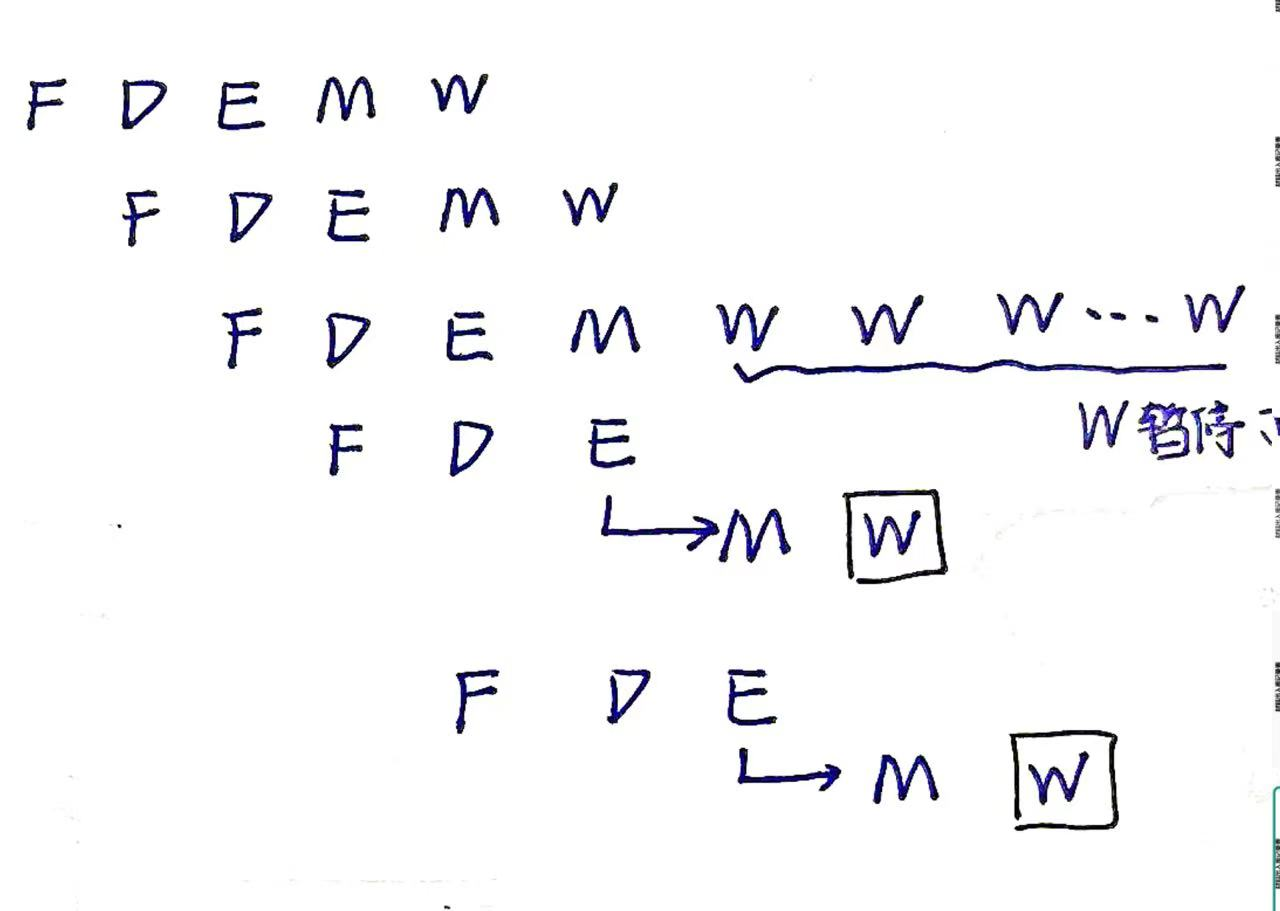 F D E M W
F D E M W
F D E M W W W ... W
W暂停
F D E
M W
F D E
M W